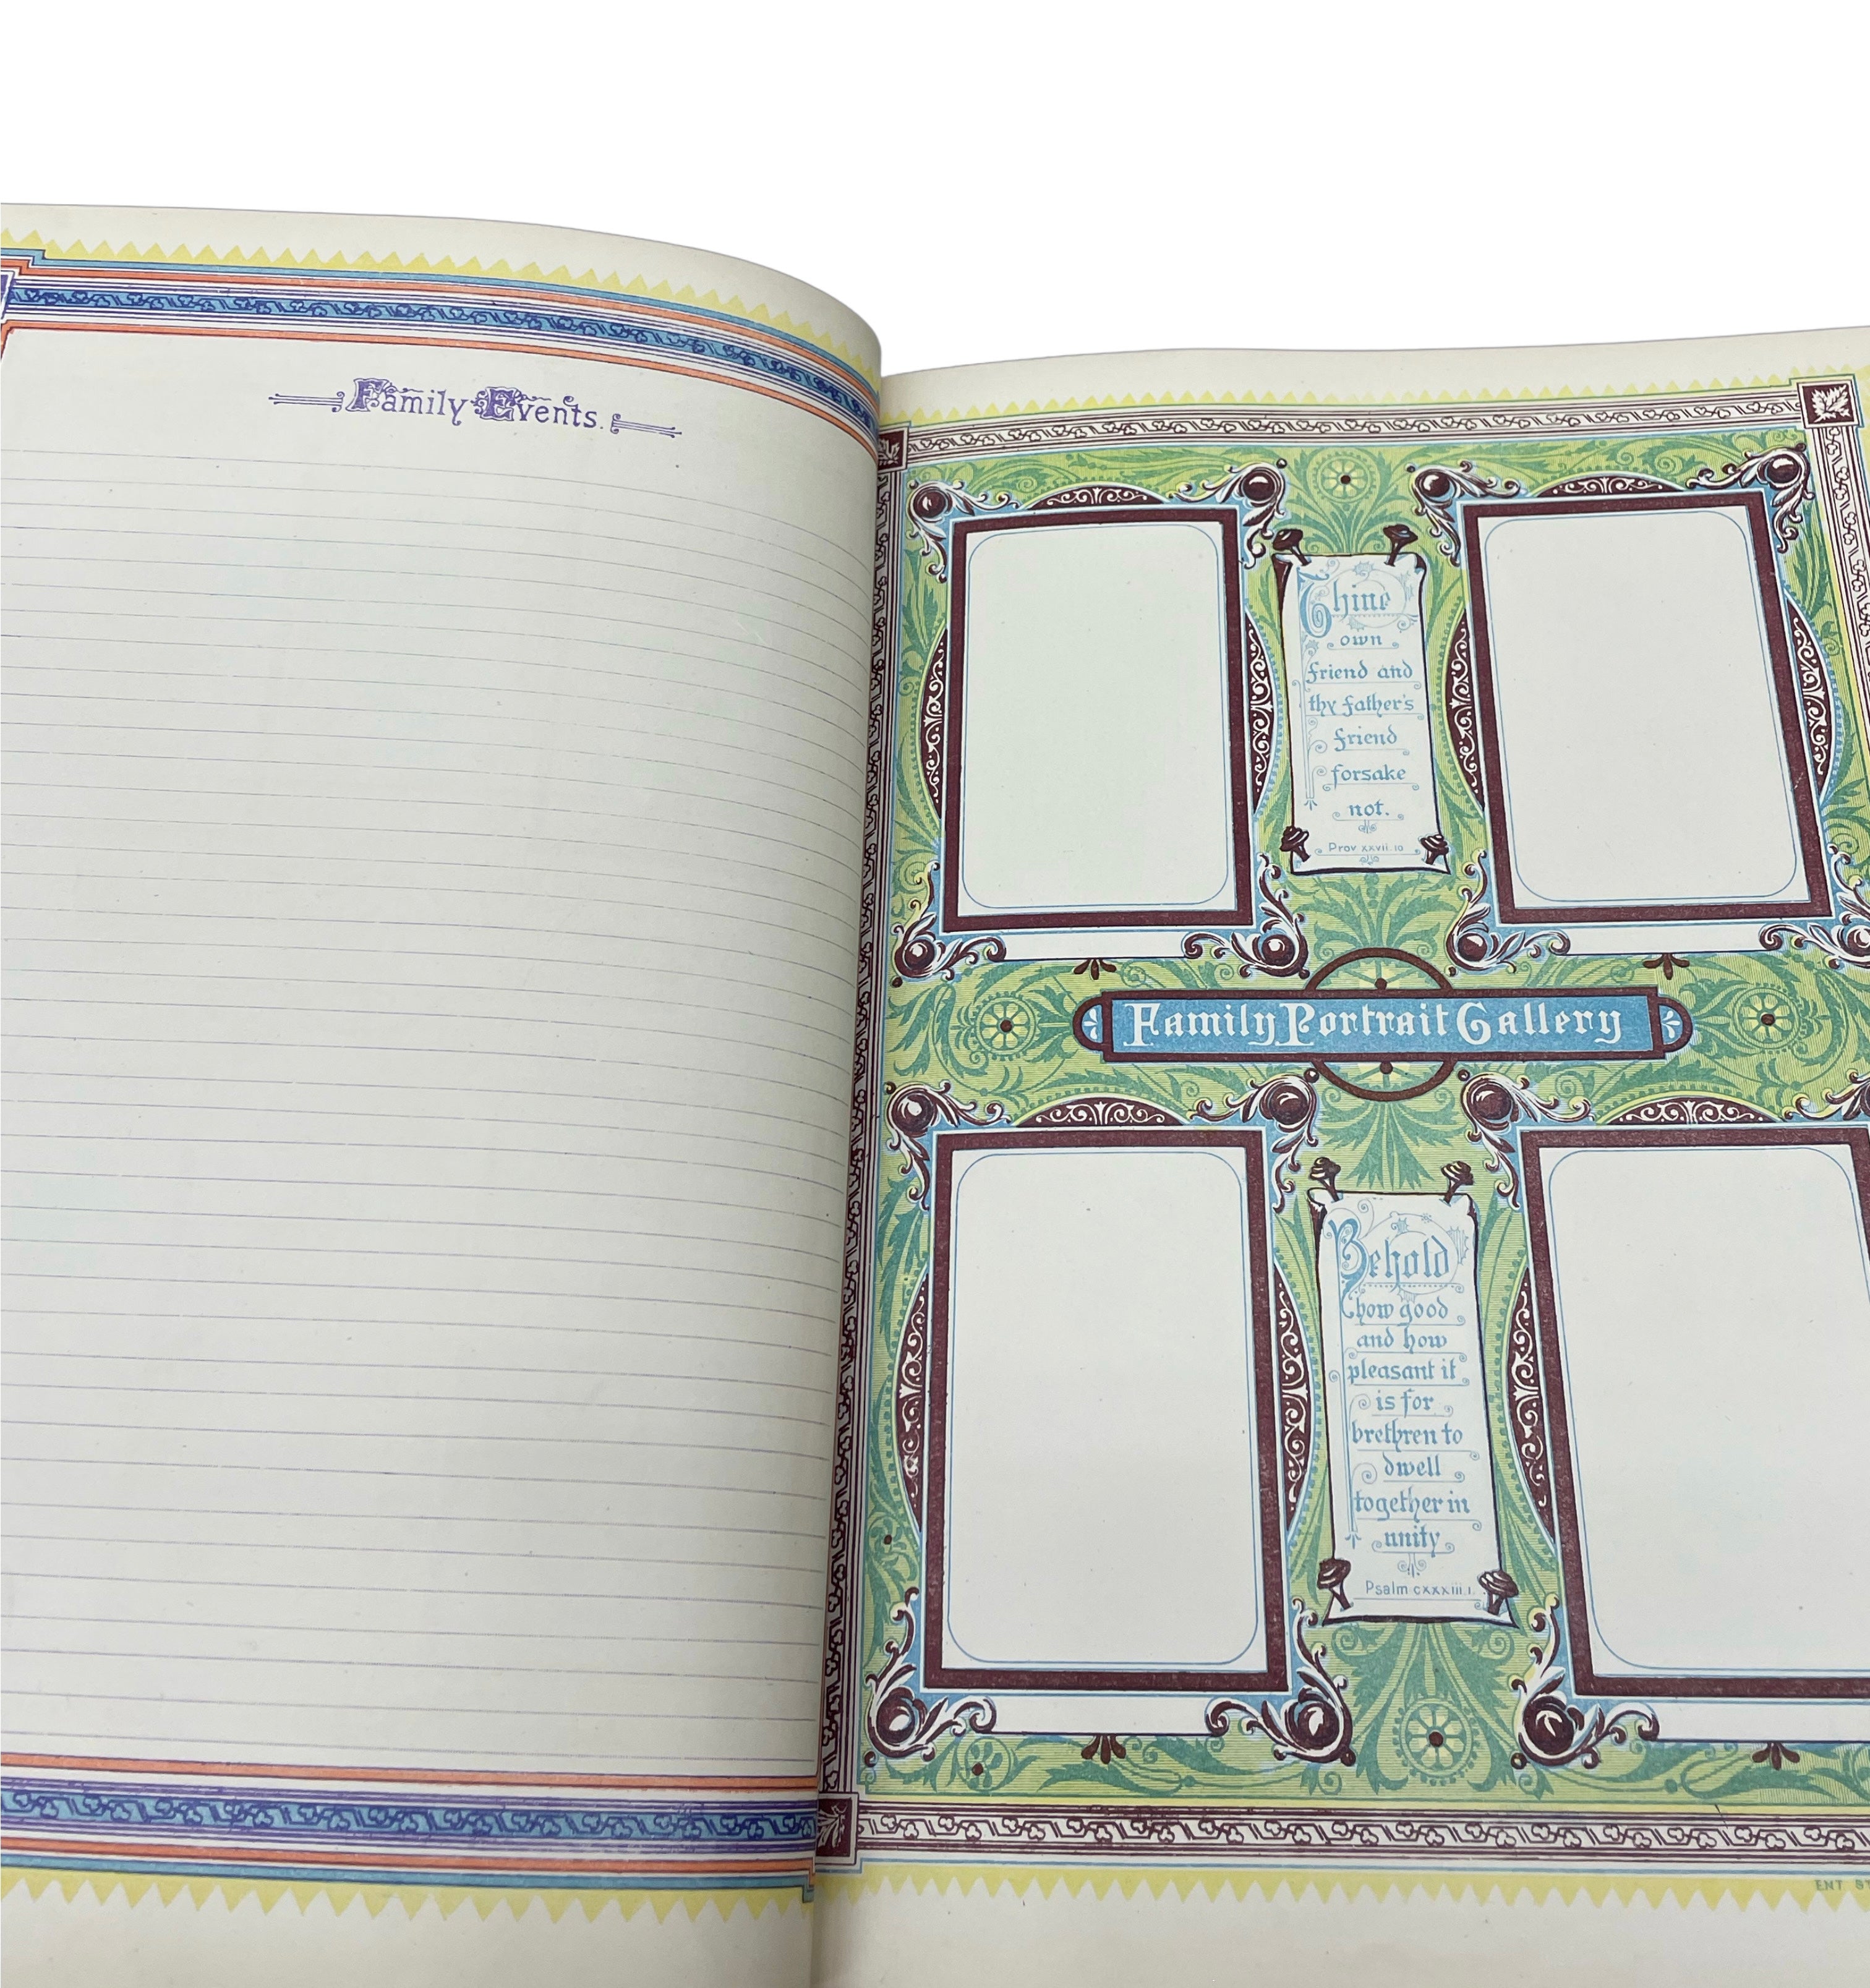 Family Events.
Thine
own
friend and
thy father's
friend
forsake
not.
Prov xxvii.10
Family Portrait Gallery
Behold
how good
and how
pleasant it
is for
brethren to
dwell
together in
unity
Psalm cxxxiii.1.
ENT